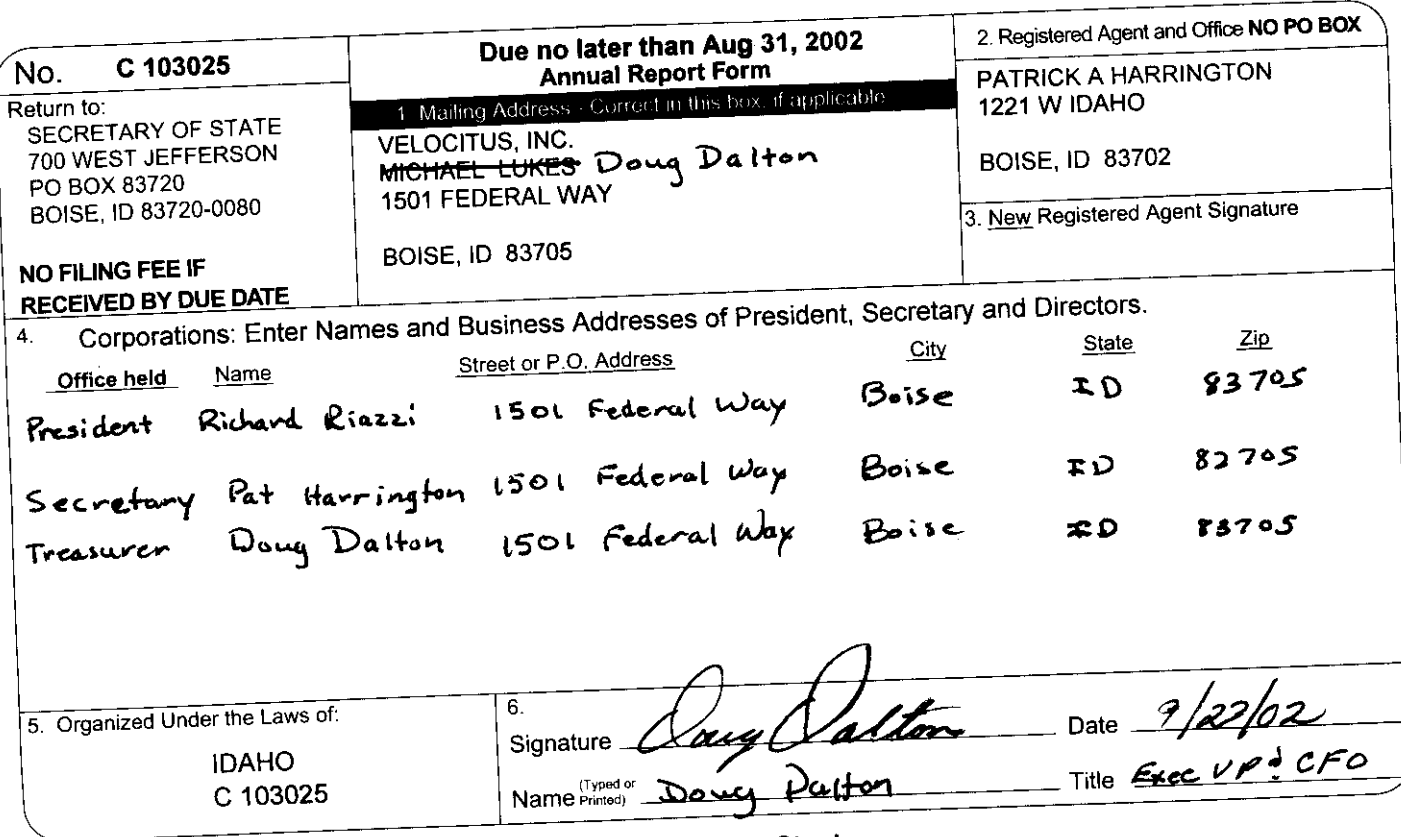 No. C 103025
Return to:
SECRETARY OF STATE
700 WEST JEFFERSON
PO BOX 83720
BOISE, ID 83720-0080
NO FILING FEE IF
RECEIVED BY DUE DATE
Due no later than Aug 31, 2002
Annual Report Form
1 Mailing Address - Correct in this box, if applicable
VELOCITUS, INC.
MICHAEL LUKES Doug Dalton
1501 FEDERAL WAY
BOISE, ID 83705
2. Registered Agent and Office NO PO BOX
PATRICK A HARRINGTON
1221 W IDAHO
BOISE, ID 83702
3. New Registered Agent Signature
4. Corporations: Enter Names and Business Addresses of President, Secretary and Directors.
Office held Name Street or P.O. Address City State Zip
President Richard Riazzi 1501 Federal Way Boise ID 83705
Secretary Pat Harrington 1501 Federal Way Boise ID 82705
Treasurer Doug Dalton 1501 Federal Way Boise ID 83705
5. Organized Under the Laws of:
IDAHO
C 103025
6.
Signature Doug Dalton Date 9/22/02
Name (Typed or Printed) Doug Dalton Title Exec VP & CFO